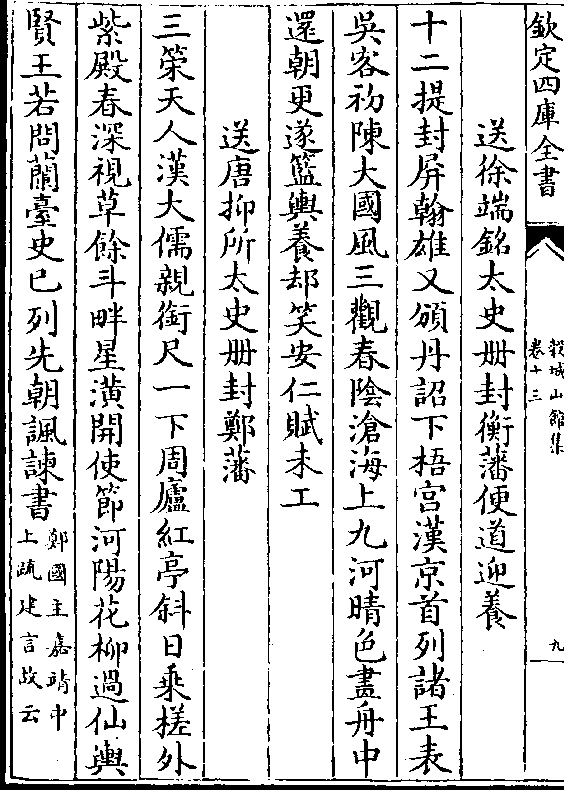 欽定四庫全書
穀城山館集
卷十三
九
送徐端銘太史册封衡藩便道迎養
十二提封屏翰雄又頒丹詔下梧宮漢京首列諸王表
吳客初陳大國風三觀春陰滄海上九河晴色畫舟中
還朝更遂籃輿養却笑安仁賦未工
送唐抑所太史册封鄭藩
三策天人漢大儒親銜尺一下周廬紅亭斜日乗槎外
紫殿春深視草餘斗畔星潢開使節河陽花柳過仙輿
賢王若問蘭臺史已列先朝諷諫書
鄭國主嘉靖中
上疏建言故云